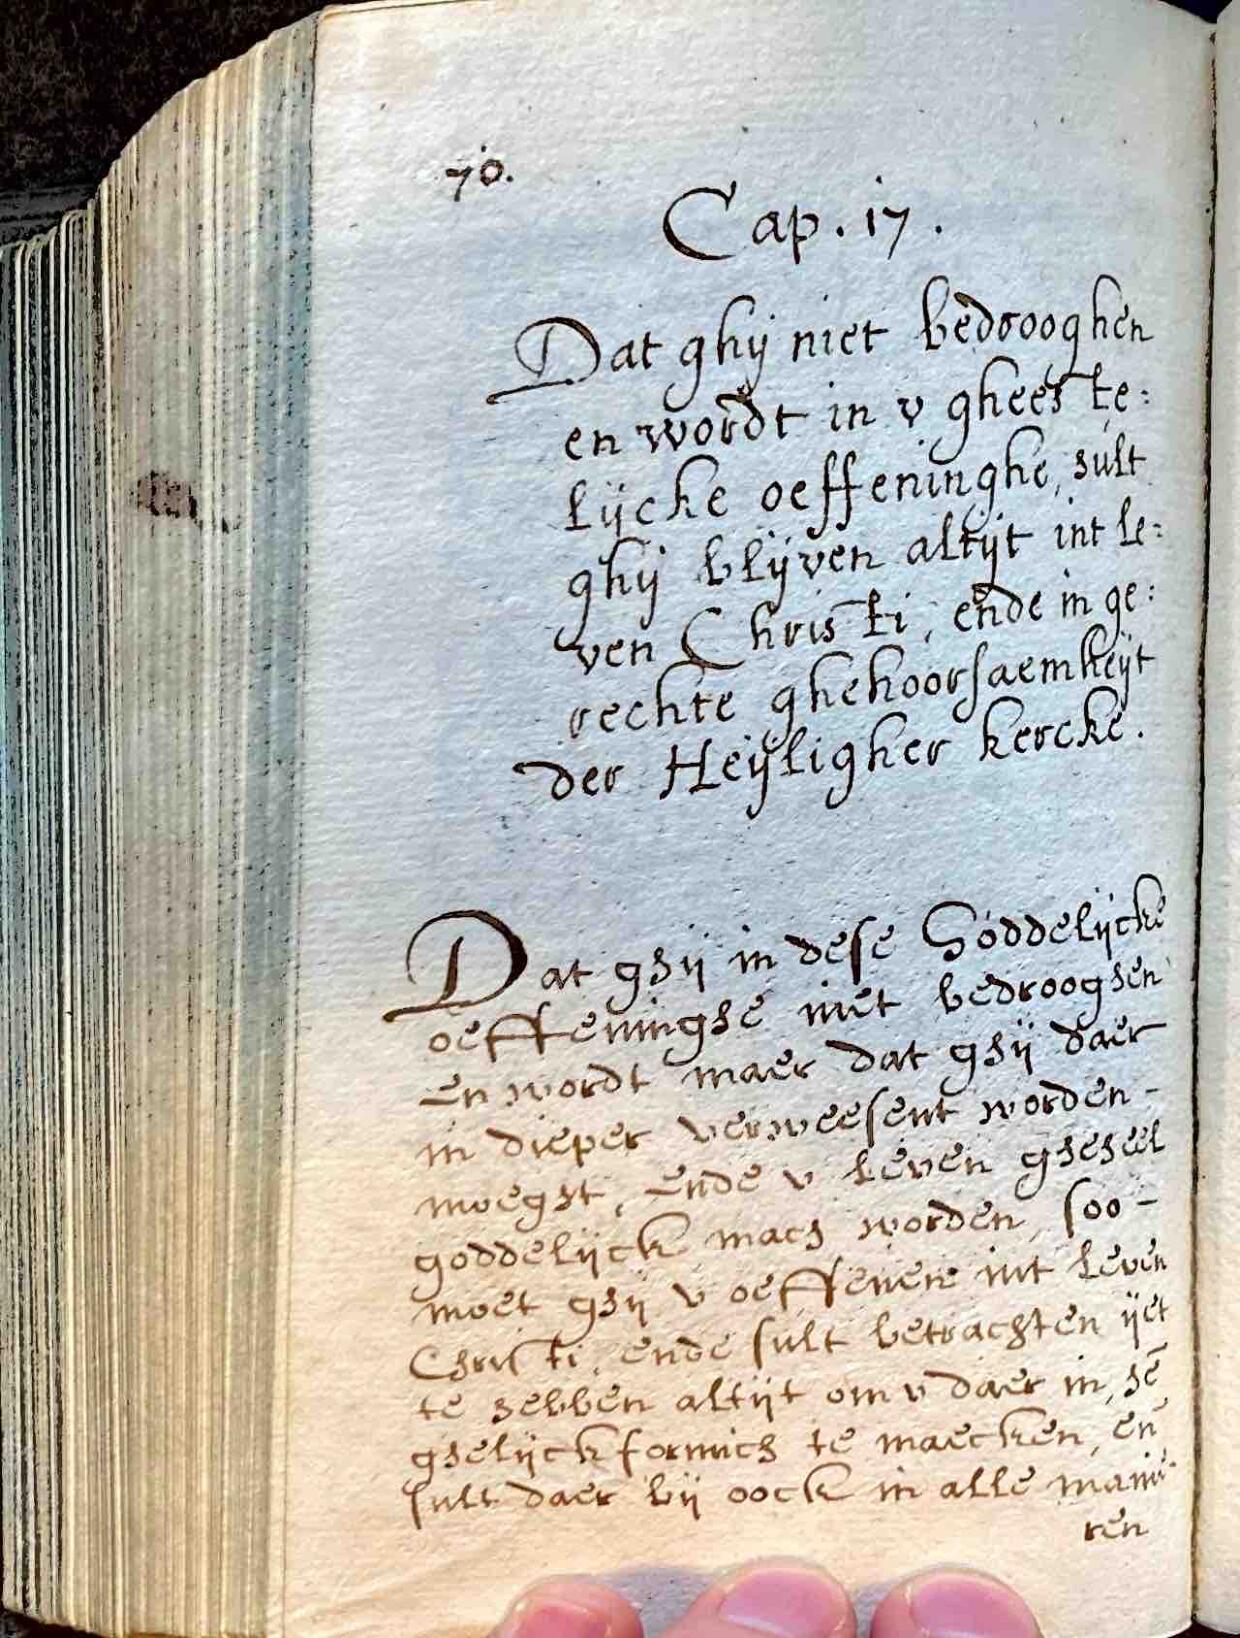 70.
Cap. 17.
Dat ghij niet bedrooghen
en wordt in v gheeste:
lijcke oeffeninghe, sult
ghij blijven altijt int le:
ven Christi, ende in ge:
rechte ghehoorsaemheijt
der Heijligher kercke.
Dat ghij in dese Goddelijcke
oeffeninghe niet bedrooghen
en wordt maer dat ghij daer
in dieper verweesent worden-
moeght, ende v leven gheheel
goddelijck mach worden, soo-
moet ghij v oeffenen int leven
Christi, ende sult betrachten ijet
te hebben altijt om v daer in, hē
ghelijckformich te maecken, en
sult daer bij oock in alle manie-
ren